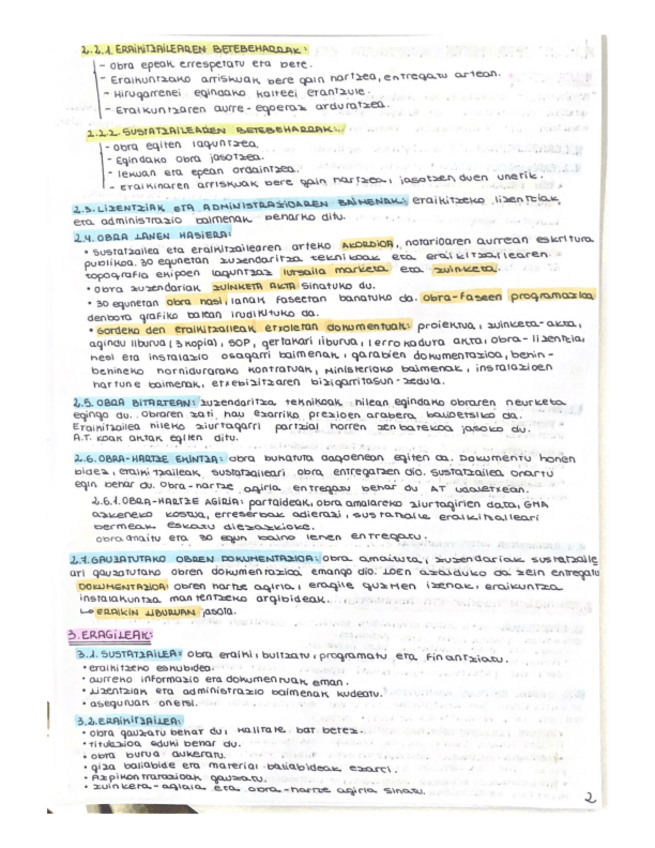 2.2.1. ERAIKITZAILEAREN BETEBEHARRAK:
- Obra epeak errespetatu eta bete.
- Eraikuntzako arriskuak bere gain hartzea, entregatu artean.
- Hirugarrenei egindako kalteei erantzule.
- Eraikuntzaren aurre-egoeraz arduratzea.
2.2.2. SUSTATZAILEAREN BETEBEHARRAK:
- Obra egiten laguntzea.
- Egindako obra jasotzea.
- lekuan eta epean ordaintzea.
- eraikinaren arriskuak bere gain hartzea, jasotzen duen unetik.
2.3. LIZENTZIAK ETA ADMINISTRAZIOAREN BAIMENAK: eraikitzeko lizentziak
eta administrazio baimenak beharko ditu.
2.4. OBRA LANEN HASIERA:
• Sustatzailea eta eraikitzailearen arteko AKORDIOA, notarioaren aurrean eskritura
publikoa. 30 egunetan zuzendaritza teknikoak eta eraikitzailearen
topografia ekipoen laguntzaz lursaila markatu eta zuinketa.
• Obra zuzendariak ZUINKETA AKTA sinatuko du.
• 30 egunetan obra hasi, lanak faseetan banatuko da. Obra-faseen programazioa
denbora grafiko batean irudikatuko da.
• Gordeko den eraikitzaileak etxoletan dokumentuak: proiektua, zuinketa-akta,
agindu liburua (3 kopia), SOP, gertakari liburua, lerrokadura akta, obra-lizentzia,
hesi eta instalazio osagarri baimenak, garabien dokumentazioa, behin-
behineko hornidurarako kontratuak, Ministerioko baimenak, instalazioen
hartune baimenak, etxebizitzaren bizigarritasun-zedula.
2.5. OBRA BITARTEAN: zuzendaritza teknikoak hilean egindako obraren neurketa
egingo du. Obraren zati hau ezarriko prezioen arabera baloetsiko da.
Eraikitzailea hileko ziurtagirri partzial horren zenbatekoa jasoko du.
A.T. koak aktak egiten ditu.
2.6. OBRA-HARTZE EKINTZA: obra bukatuta dagoenean egiten da. Dokumentu honen
bidez, eraikitzaileak, sustatzaileari obra entregatzen dio. Sustatzailea onartu
egin behar du. Obra-hartze agiria entregatu behar du AT udaletxean.
2.6.1. OBRA-HARTZE AGIRIA: partaideak, obra amaierako ziurtagirien data, GMA
azkeneko kostua, erreserbak adierazi, sustatzaile eraikitzaileari
bermeak eskatu diezazkioke.
obra amaitu eta 30 egun baino lehen entregatu.
2.7. GAUZATUTAKO OBREN DOKUMENTAZIOA: obra amaituta, zuzendariak sustatzaile
ari gauzatutako obren dokumentazioa emango dio.
DOKUMENTAZIOA: obren hartze agiria, eragile guztien izenak, eraikuntza
instalakuntza mantentzeko argibideak.
↳ ERAIKIN LIBURUAN jasota.
3. ERAGILEAK:
3.1. SUSTATZAILEA: obra eraiki, bultzatu, programatu eta finantziatu.
• eraikitzeko eskubidea.
• aurreko informazio eta dokumentuak eman.
• Lizentziak eta administrazio baimenak kudeatu.
• aseguruak onetsi.
3.2. ERAIKITZAILEA:
• obra gauzatu behar du, kalitate bat betez.
• titulazioa eduki behar du.
• obra burua aukeratu.
• giza baliabide eta material baliabideak ezarri.
• Azpikontratazioak gauzatu.
• zuinketa-agiria eta obra-hartze agiria sinatu.
2